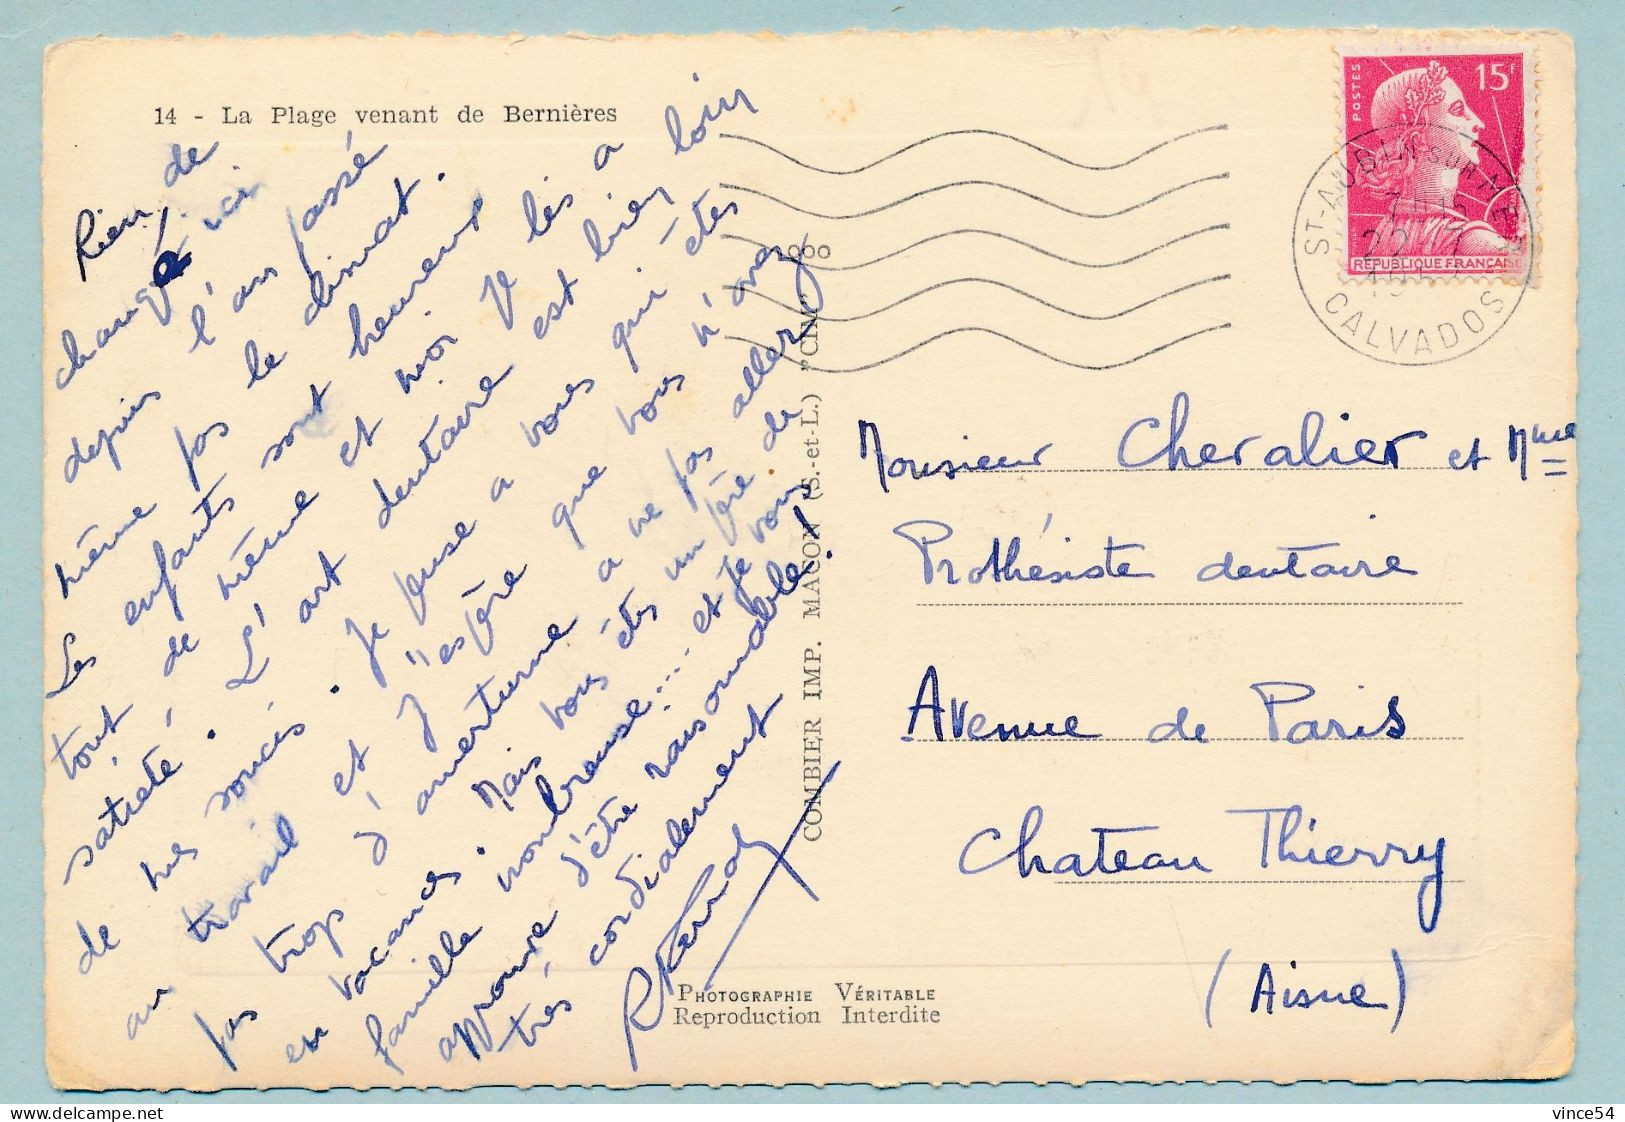 14 - La Plage venant de Bernières
Rien de
changé ici
depuis l'an passé
même pas le climat.
Les enfants sont heureux
tout de même et moi je lis à
satiété. L'art dentaire est bien loin
de mes soucis. Je pense à vous qui êtes
au travail et j'espère que vous n'avez
pas trop d'amertume à ne pas aller
en vacances. Mais vous êtes un père de
famille nombreuse.... et je vous
approuve d'être raisonnable!
très cordialement
COMBIER IMP. MACON (S.-et-L.) "CIM"
PHOTOGRAPHIE VÉRITABLE
Reproduction Interdite
POSTES
15F
REPUBLIQUE FRANÇAISE
ST-AUBIN-SUR-MER
CALVADOS
Monsieur Chevalier et Mme
Prothésiste dentaire
Avenue de Paris
Chateau Thierry
(Aisne)
vince54